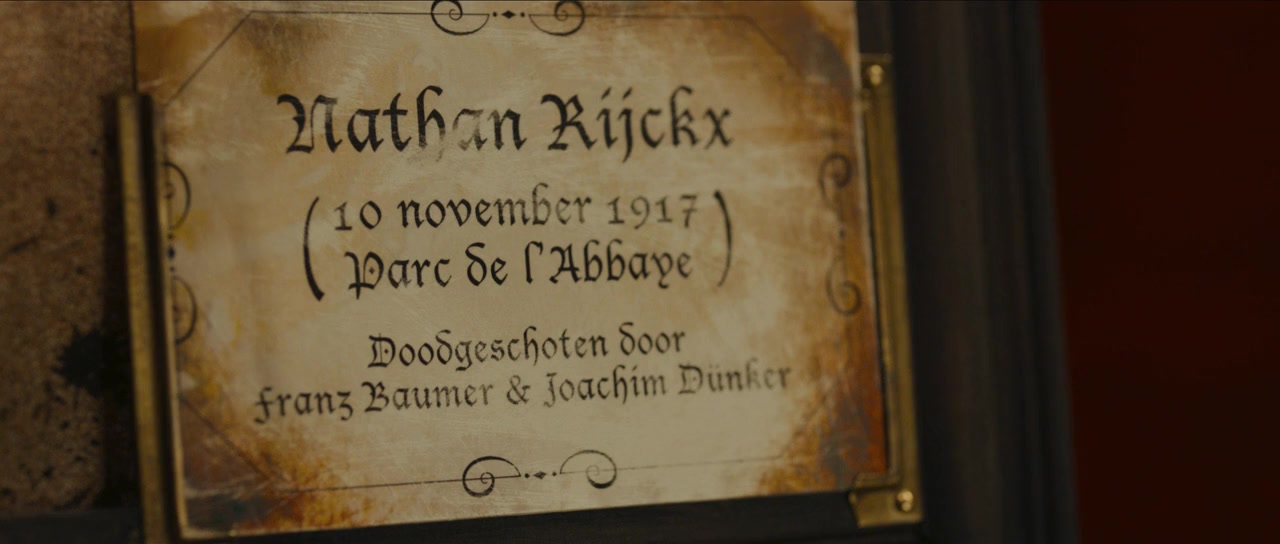 Nathan Rijckx
(10 november 1917
Parc de l'Abbaye)
Doodgeschoten door
Franz Baumer & Joachim Dünker